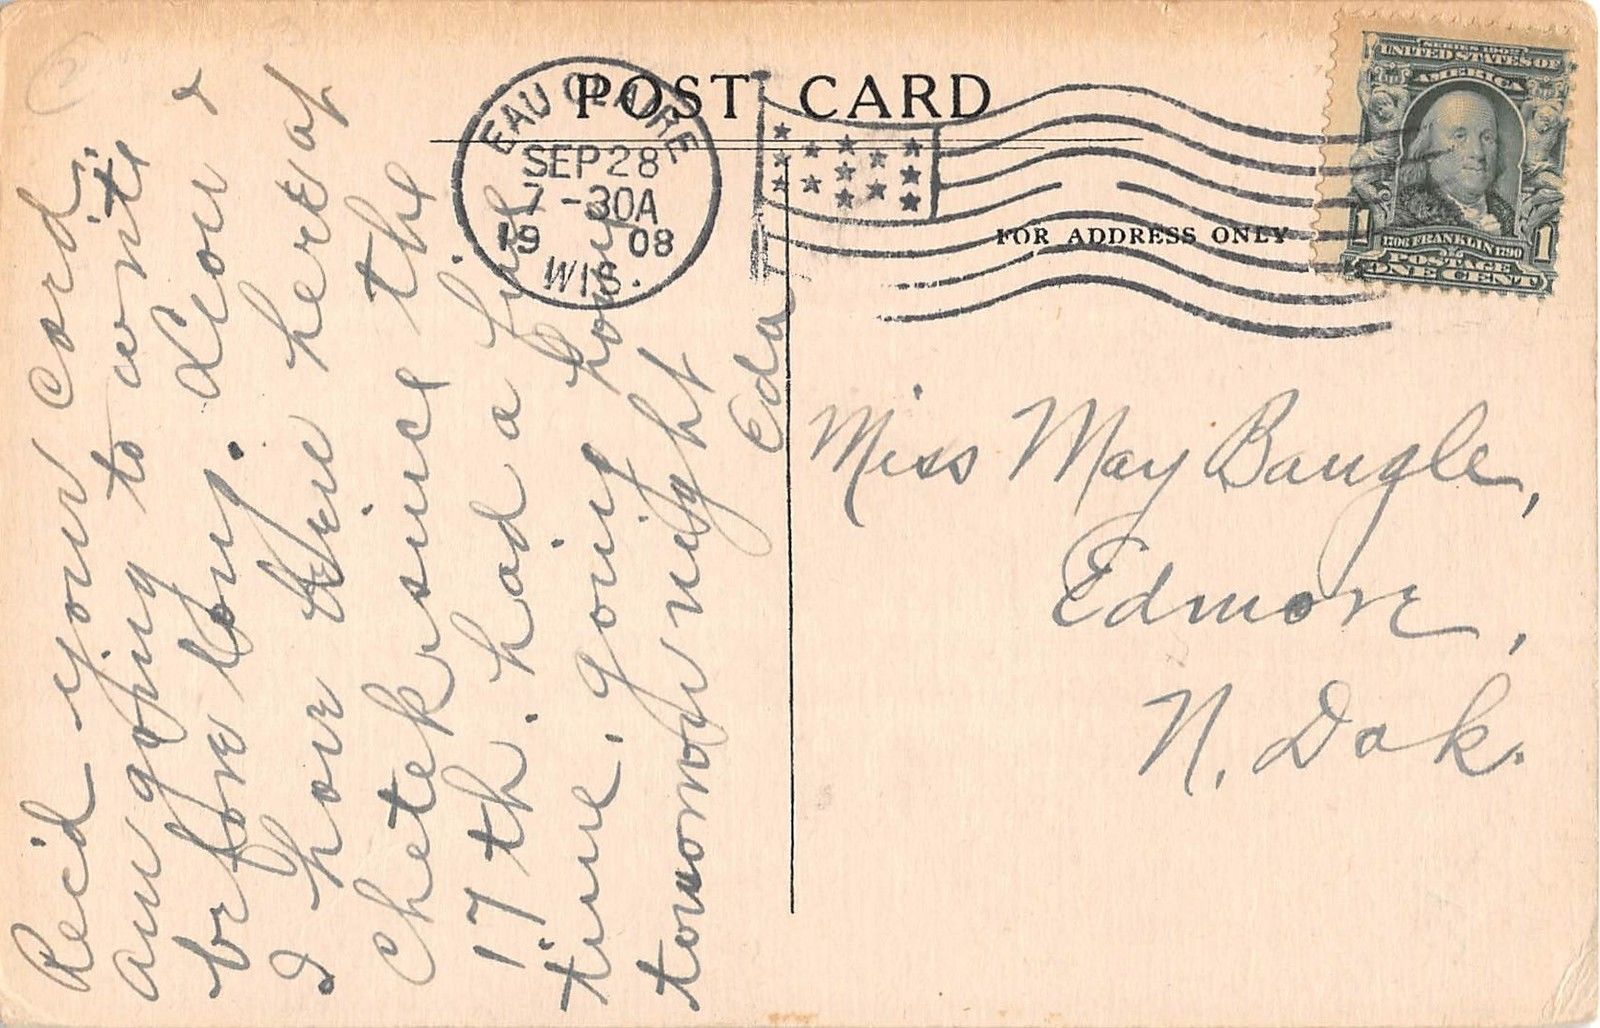 POST CARD
EAU CLAIRE
SEP 28
7-30A
1908
WIS.
SERIES 1902
UNITED STATES OF
AMERICA
1706 FRANKLIN 1790
POSTAGE
1 1
ONE CENT
FOR ADDRESS ONLY
Rec'd your card.
am going to write
before long. Leon &
I have been here at
Chetek since the
17th. had a fine
time. going home
tomorrow night
Eda
Miss May Baugle,
Edmore,
N. Dak.